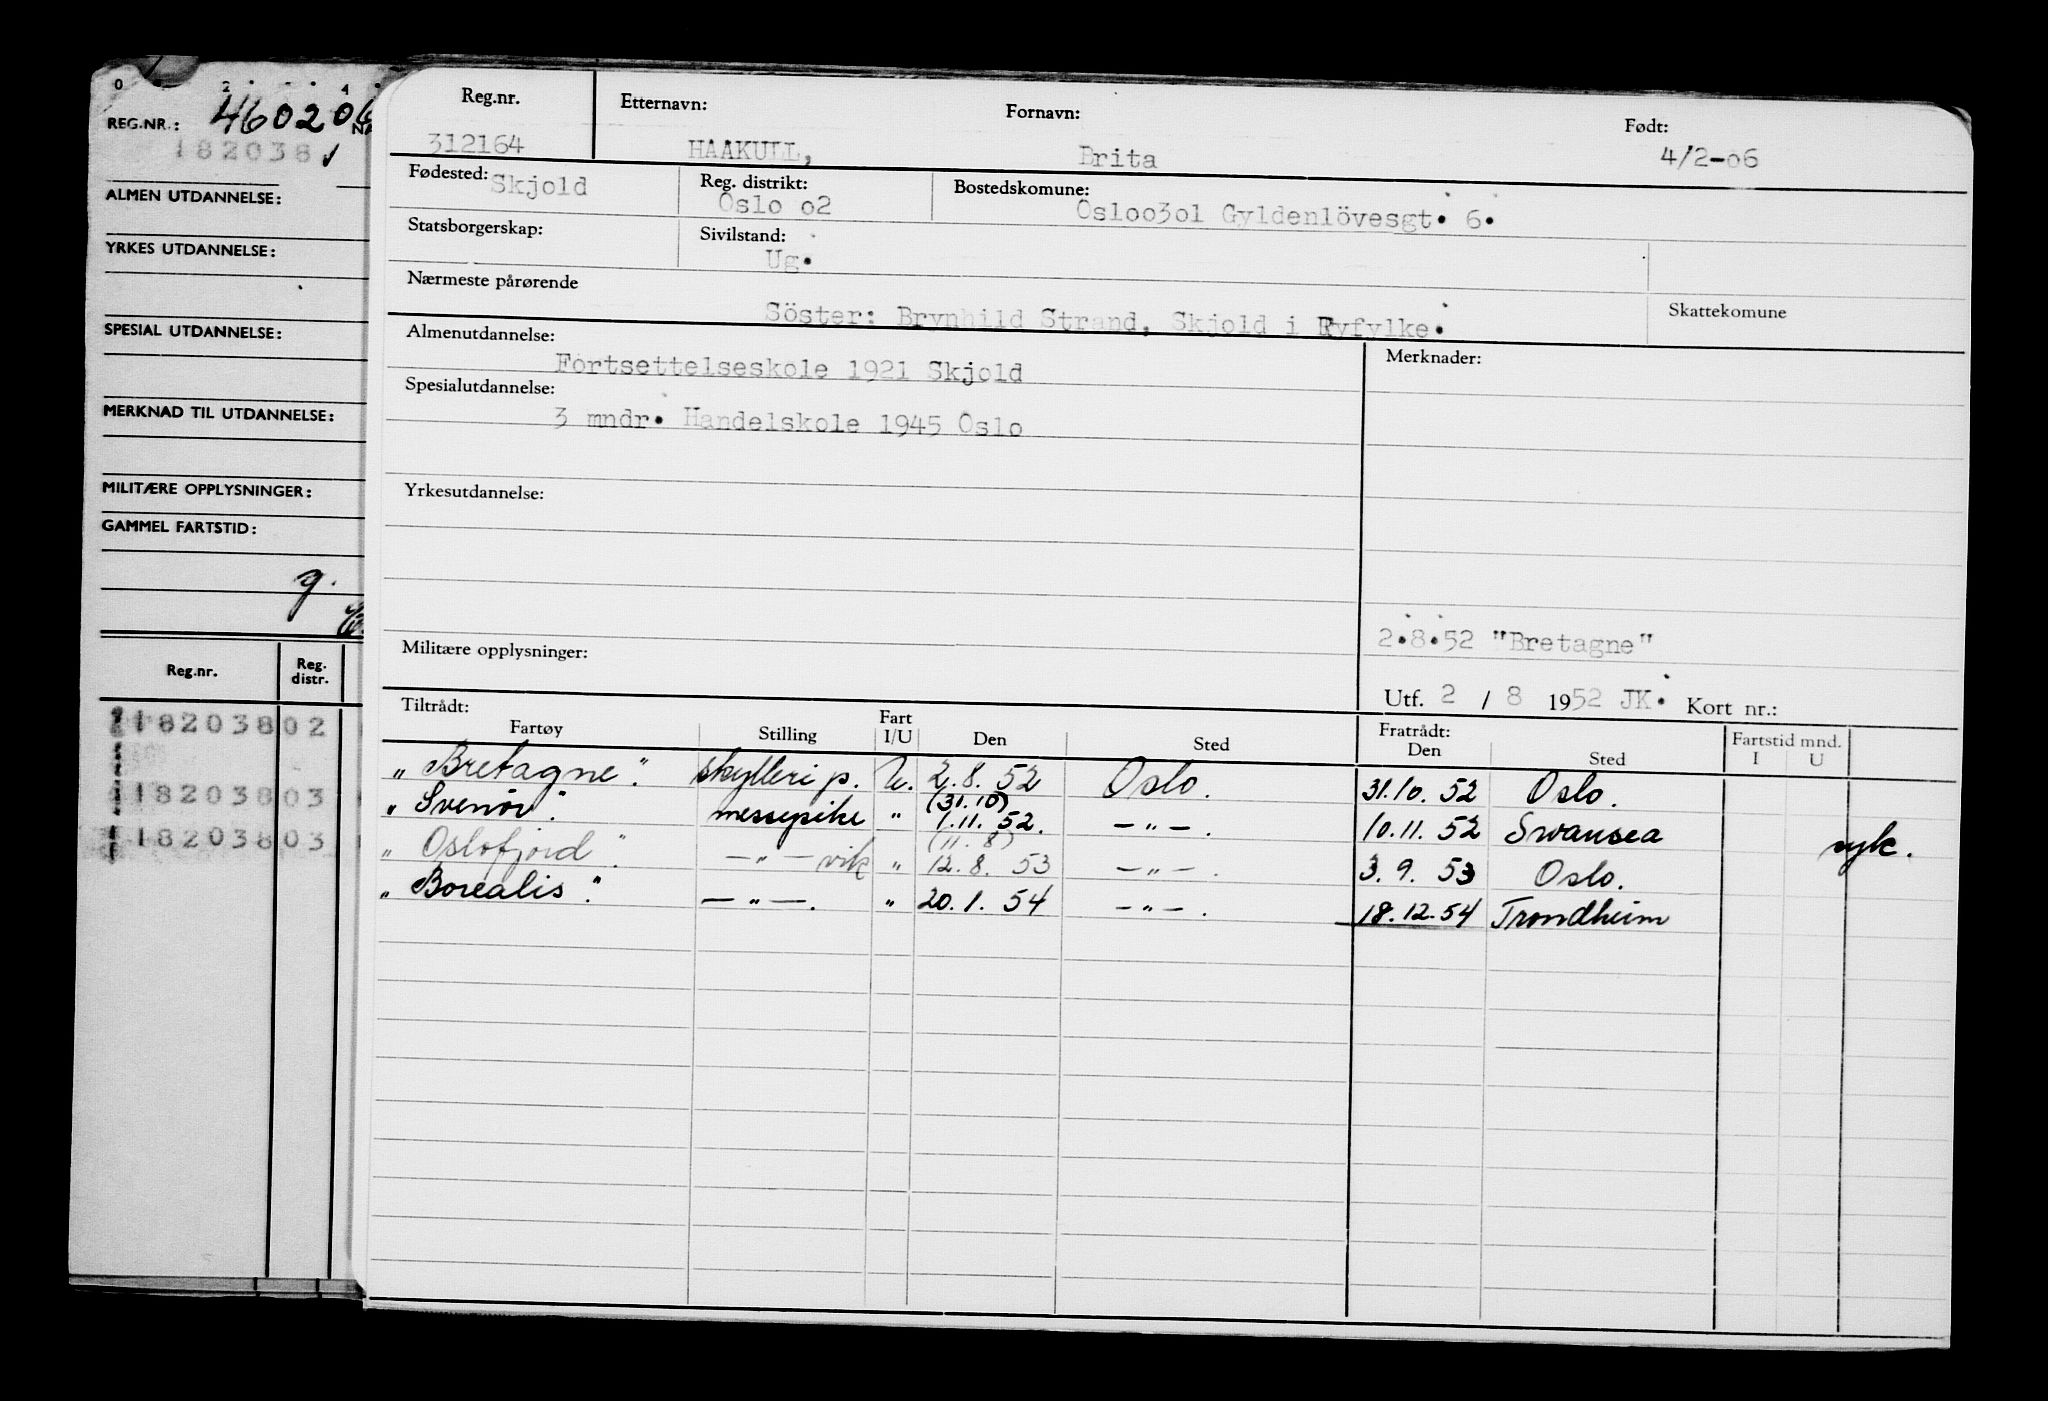 0 2 4
REG.NR.: 460206
182038 ✓
ALMEN UTDANNELSE:
YRKES UTDANNELSE:
SPESIAL UTDANNELSE:
MERKNAD TIL UTDANNELSE:
MILITÆRE OPPLYSNINGER:
GAMMEL FARTSTID:
g.
Reg.nr. Reg. distr.
182038 02
182038 03
182038 03
Reg.nr. Etternavn: Fornavn: Født:
312164 HAAKULL, Brita 4/2-06
Fødested: Skjold Reg. distrikt: Oslo o2 Bostedskomune: Osloo3o1 Gyldenlövesgt. 6.
Statsborgerskap: Sivilstand: Ug.
Nærmeste pårørende Skattekomune
Söster: Brynhild Strand, Skjold i Ryfylke.
Almenutdannelse: Merknader:
Fortsettelseskole 1921 Skjold
Spesialutdannelse:
3 mndr. Handelskole 1945 Oslo
Yrkesutdannelse:
2.8.52 "Bretagne"
Militære opplysninger:
Utf. 2 / 8 1952 JK. Kort nr.:
Tiltrådt: Fratrådt: Fartstid mnd.
Fartøy Stilling Fart I/U Den Sted Den Sted I U
"Bretagne". skylleri p. U. 2.8.52 Oslo. 31.10.52 Oslo.
"Svenör". messepike " (31.10) 1.11.52. —"—. 10.11.52 Swansea syk.
"Oslofjord". —"— vik " (11.8) 12.8.53 —"—. 3.9.53 Oslo.
"Borealis". —"—. " 20.1.54 —"—. 18.12.54 Trondheim